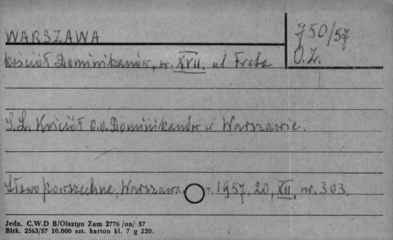 WARSZAWA
950/57
O.Z.
kościół Dominikanów, w. XVII. ul. Freta
S.Z. Kościół o.o. Dominikanów w Warszawie.
Słowo powszechne, Warszawa r. 1957, 20, XII, nr. 303.
Jedn. C.W.D B/Olsztyn Zam 2776 /on/ 57
Bltk. 2563/57 10.000 szt. karton kl. 7 g 220.